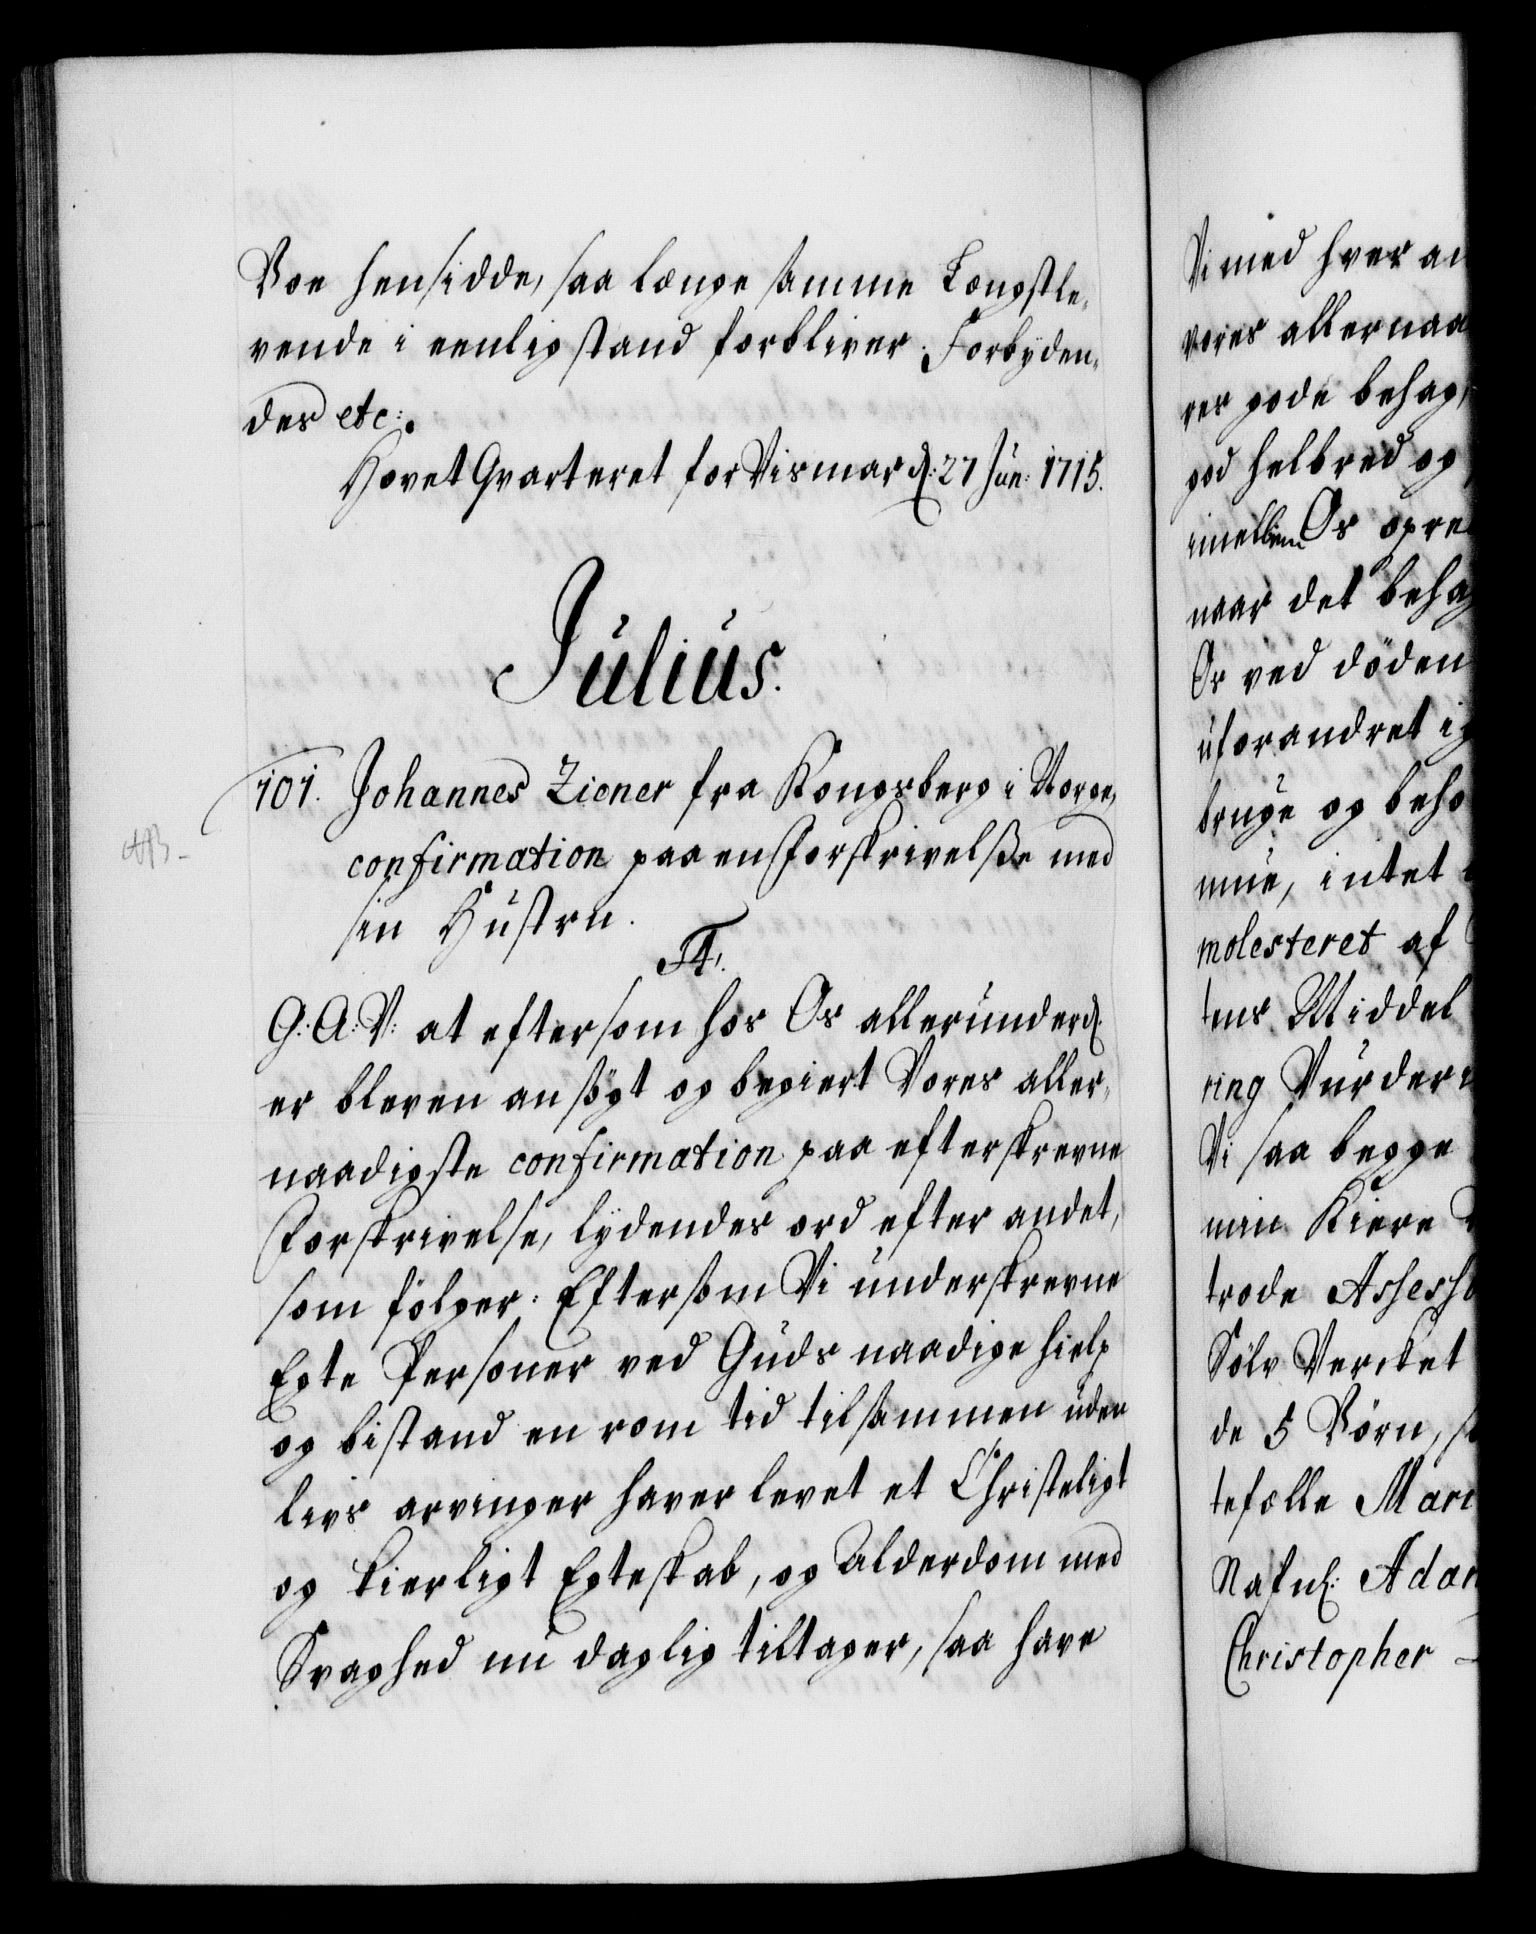 Boe hensidde, saa længe samme Længstle-
vende i eenlig stand forbliver. Forbyden-
des etc:
HovetQvarteret for Vismar d: 27 Jun: 1715.
Julius.
101. Johannes Ziener fra Kongsberg i Norge,
confirmation paa en forskrivelsse med
sin Hustru.
F4.
G: A: V: at eftersom hos Os allerunderd:
er bleven ansøgt og begiert Vores aller-
naadigste confirmation paa efterskrevne
forskrivelse, lydendes ord efter andet,
som følger: Eftersom Vi underskrevne
Egte Personer ved Guds naadige hielp
og bistand en rom tid tilsammen uden
livs arvinger haver levet et Christeligt
og kierligt Egteskab, og Alderdom med
Svaghed nu daglig tiltager, saa have
Vi med hver an
vores allernaa
res gode behag,
god helbred og
imellem Os opre
naar det behag
Os ved døden
uforandret i
bruge og beho
mue, intet
molesteret af
tens Middel
ring Vurderi
Vi saa begge
min Kiere
trode Assesso
Sølv Vercket
de 5 Børn, s
tefælle Mari
Nafnl: Adam
Christopher